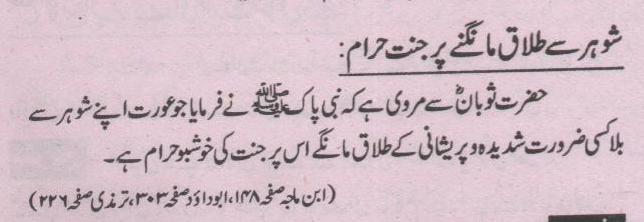 شوہر سے طلاق مانگنے پر جنت حرام:
حضرت ثوبانؓ سے مروی ہے کہ نبی پاک ﷺ نے فرمایا جو عورت اپنے شوہر سے
بلا کسی ضرورت شدیدہ و پریشانی کے طلاق مانگے اس پر جنت کی خوشبو حرام ہے۔
(ابن ماجہ صفحہ ۱۴۸، ابوداؤد صفحہ ۳۰۳، ترمذی صفحہ ۲۲۶)